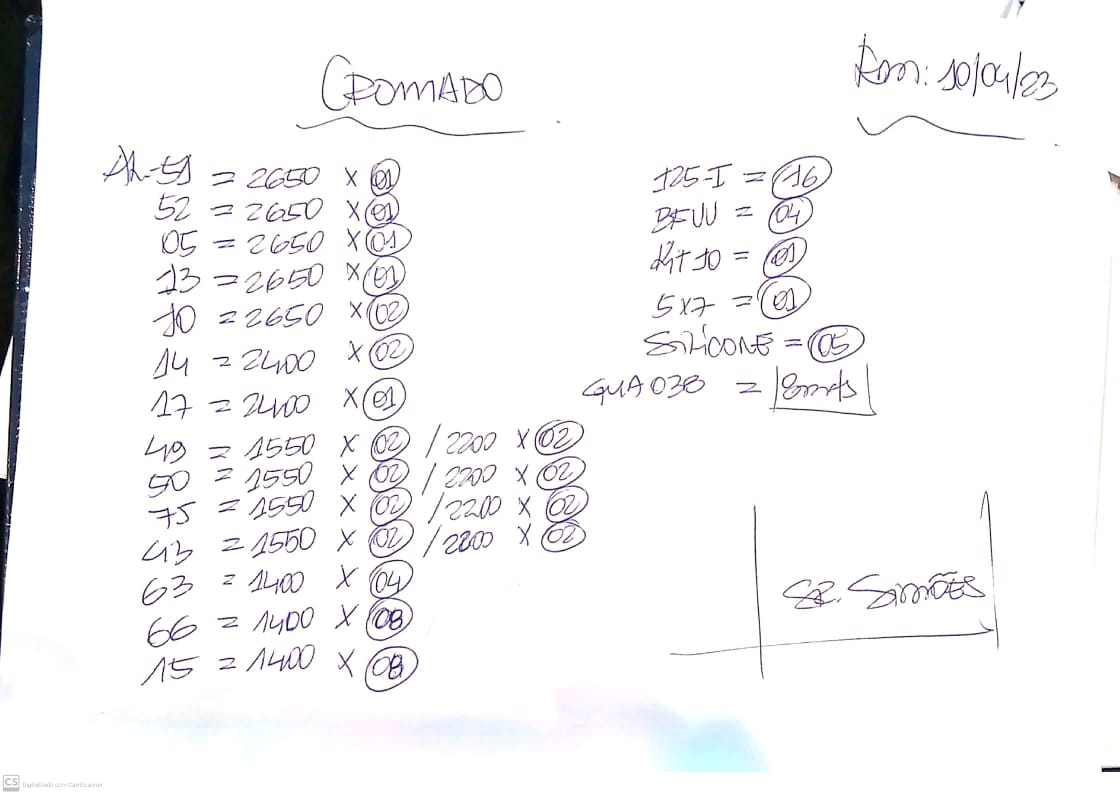 CROMADO
Rom: 10/04/23
AL-51 = 2650 x 01
52 = 2650 x 01
05 = 2650 x 01
13 = 2650 x 01
10 = 2650 x 02
14 = 2400 x 02
17 = 2400 x 01
49 = 1550 x 02 / 2200 x 02
50 = 1550 x 02 / 2200 x 02
75 = 1550 x 02 / 2200 x 02
43 = 1550 x 02 / 2200 x 02
63 = 1400 x 04
66 = 1400 x 08
15 = 1400 x 08
125-I = 16
BFUU = 04
Kit 10 = 01
5x7 = 01
SILÍCONE = 05
GUA 038 = 8mts
SR. SIMÕES
CS Digitalizado com CamScanner